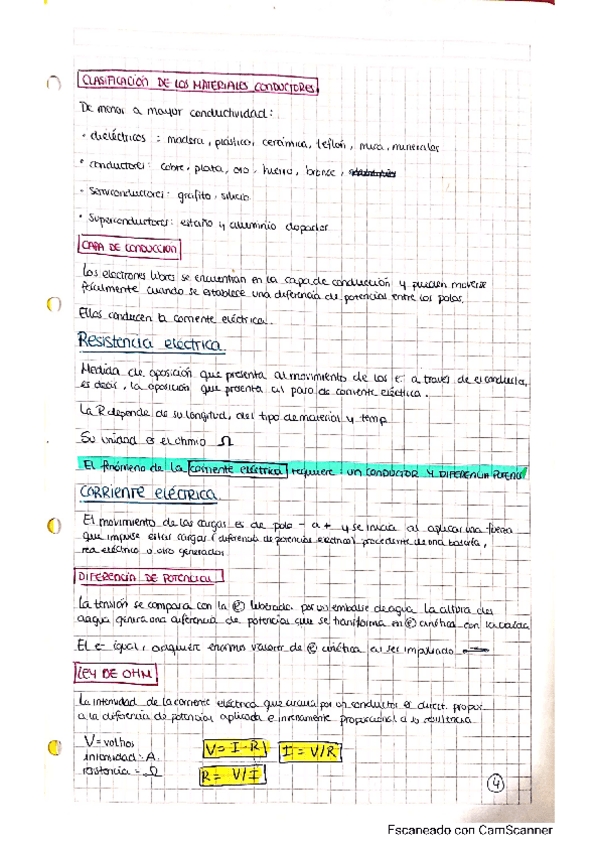 CLASIFICACIÓN DE LOS MATERIALES CONDUCTORES
De menor a mayor conductividad:
· dieléctricos : madera, plástico, cerámica, teflón, mica, minerales
· conductores: cobre, plata, oro, hierro, bronce,
· Semiconductores: grafito, silicio
· Superconductores: estaño y aluminio dopados
CAPA DE CONDUCCIÓN
Los electrones libres se encuentran en la capa de conducción y pueden moverse
fácilmente cuando se establece una diferencia de potencial entre los polos.
Ellos conducen la corriente eléctrica.
Resistencia eléctrica.
Medida de oposición que presenta al movimiento de los e- a través de el conductor,
es decir, la oposición que presenta al paso de corriente eléctrica.
La R depende de su longitud, del tipo de material y temp.
Su unidad es el ohmio Ω
El fenómeno de la corriente eléctrica requiere: un CONDUCTOR Y DIFERENCIA POTENC
CORRIENTE ELÉCTRICA
El movimiento de las cargas es de polo - a + y se inicia al aplicar una fuerza
que impulse estas cargas (diferencia de potencial eléctrico) procedente de una batería,
red eléctrica o otro generador.
DIFERENCIA DE POTENCIAL
La tensión se compara con la E liberada por un embalse de agua. La altura del
agua genera una diferencia de potencial que se transforma en E cinética con la caída
El e- igual, adquiere enormes valores de E cinética al ser impulsado
LEY DE OHM
La intensidad de la corriente eléctrica que circula por un conductor es direct. propor.
a la diferencia de potencial aplicada e inversamente proporcional a su resistencia.
V = voltios
intensidad = A.
resistencia = Ω
V = I · R
I = V/R
R = V/I
4
Escaneado con CamScanner